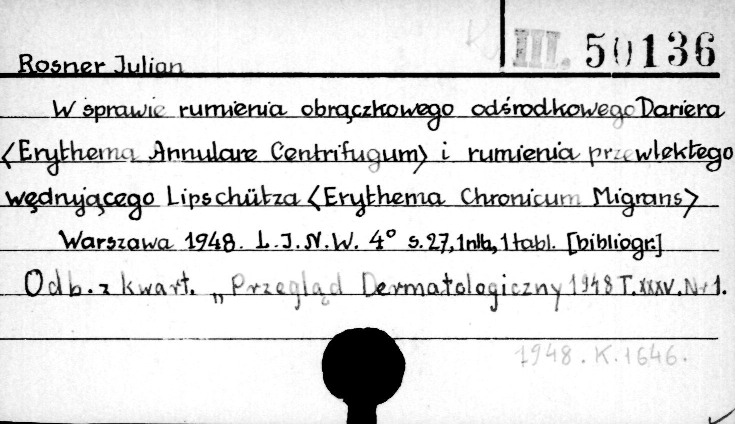 III. 50136
Rosner Julian
W sprawie rumienia obrączkowego odśrodkowego Dariera
<Erythema Annulare Centrifugum> i rumienia przewlekłego
wędrującego Lipschütza <Erythema Chronicum Migrans>
Warszawa 1948. L.I.N.W. 4° s. 27, 1 nlb, 1 tabl. [bibliogr.]
Odb. z kwart. „Przegląd Dermatologiczny 1948 T. XXXV. Nr 1.
1948. K. 1646.